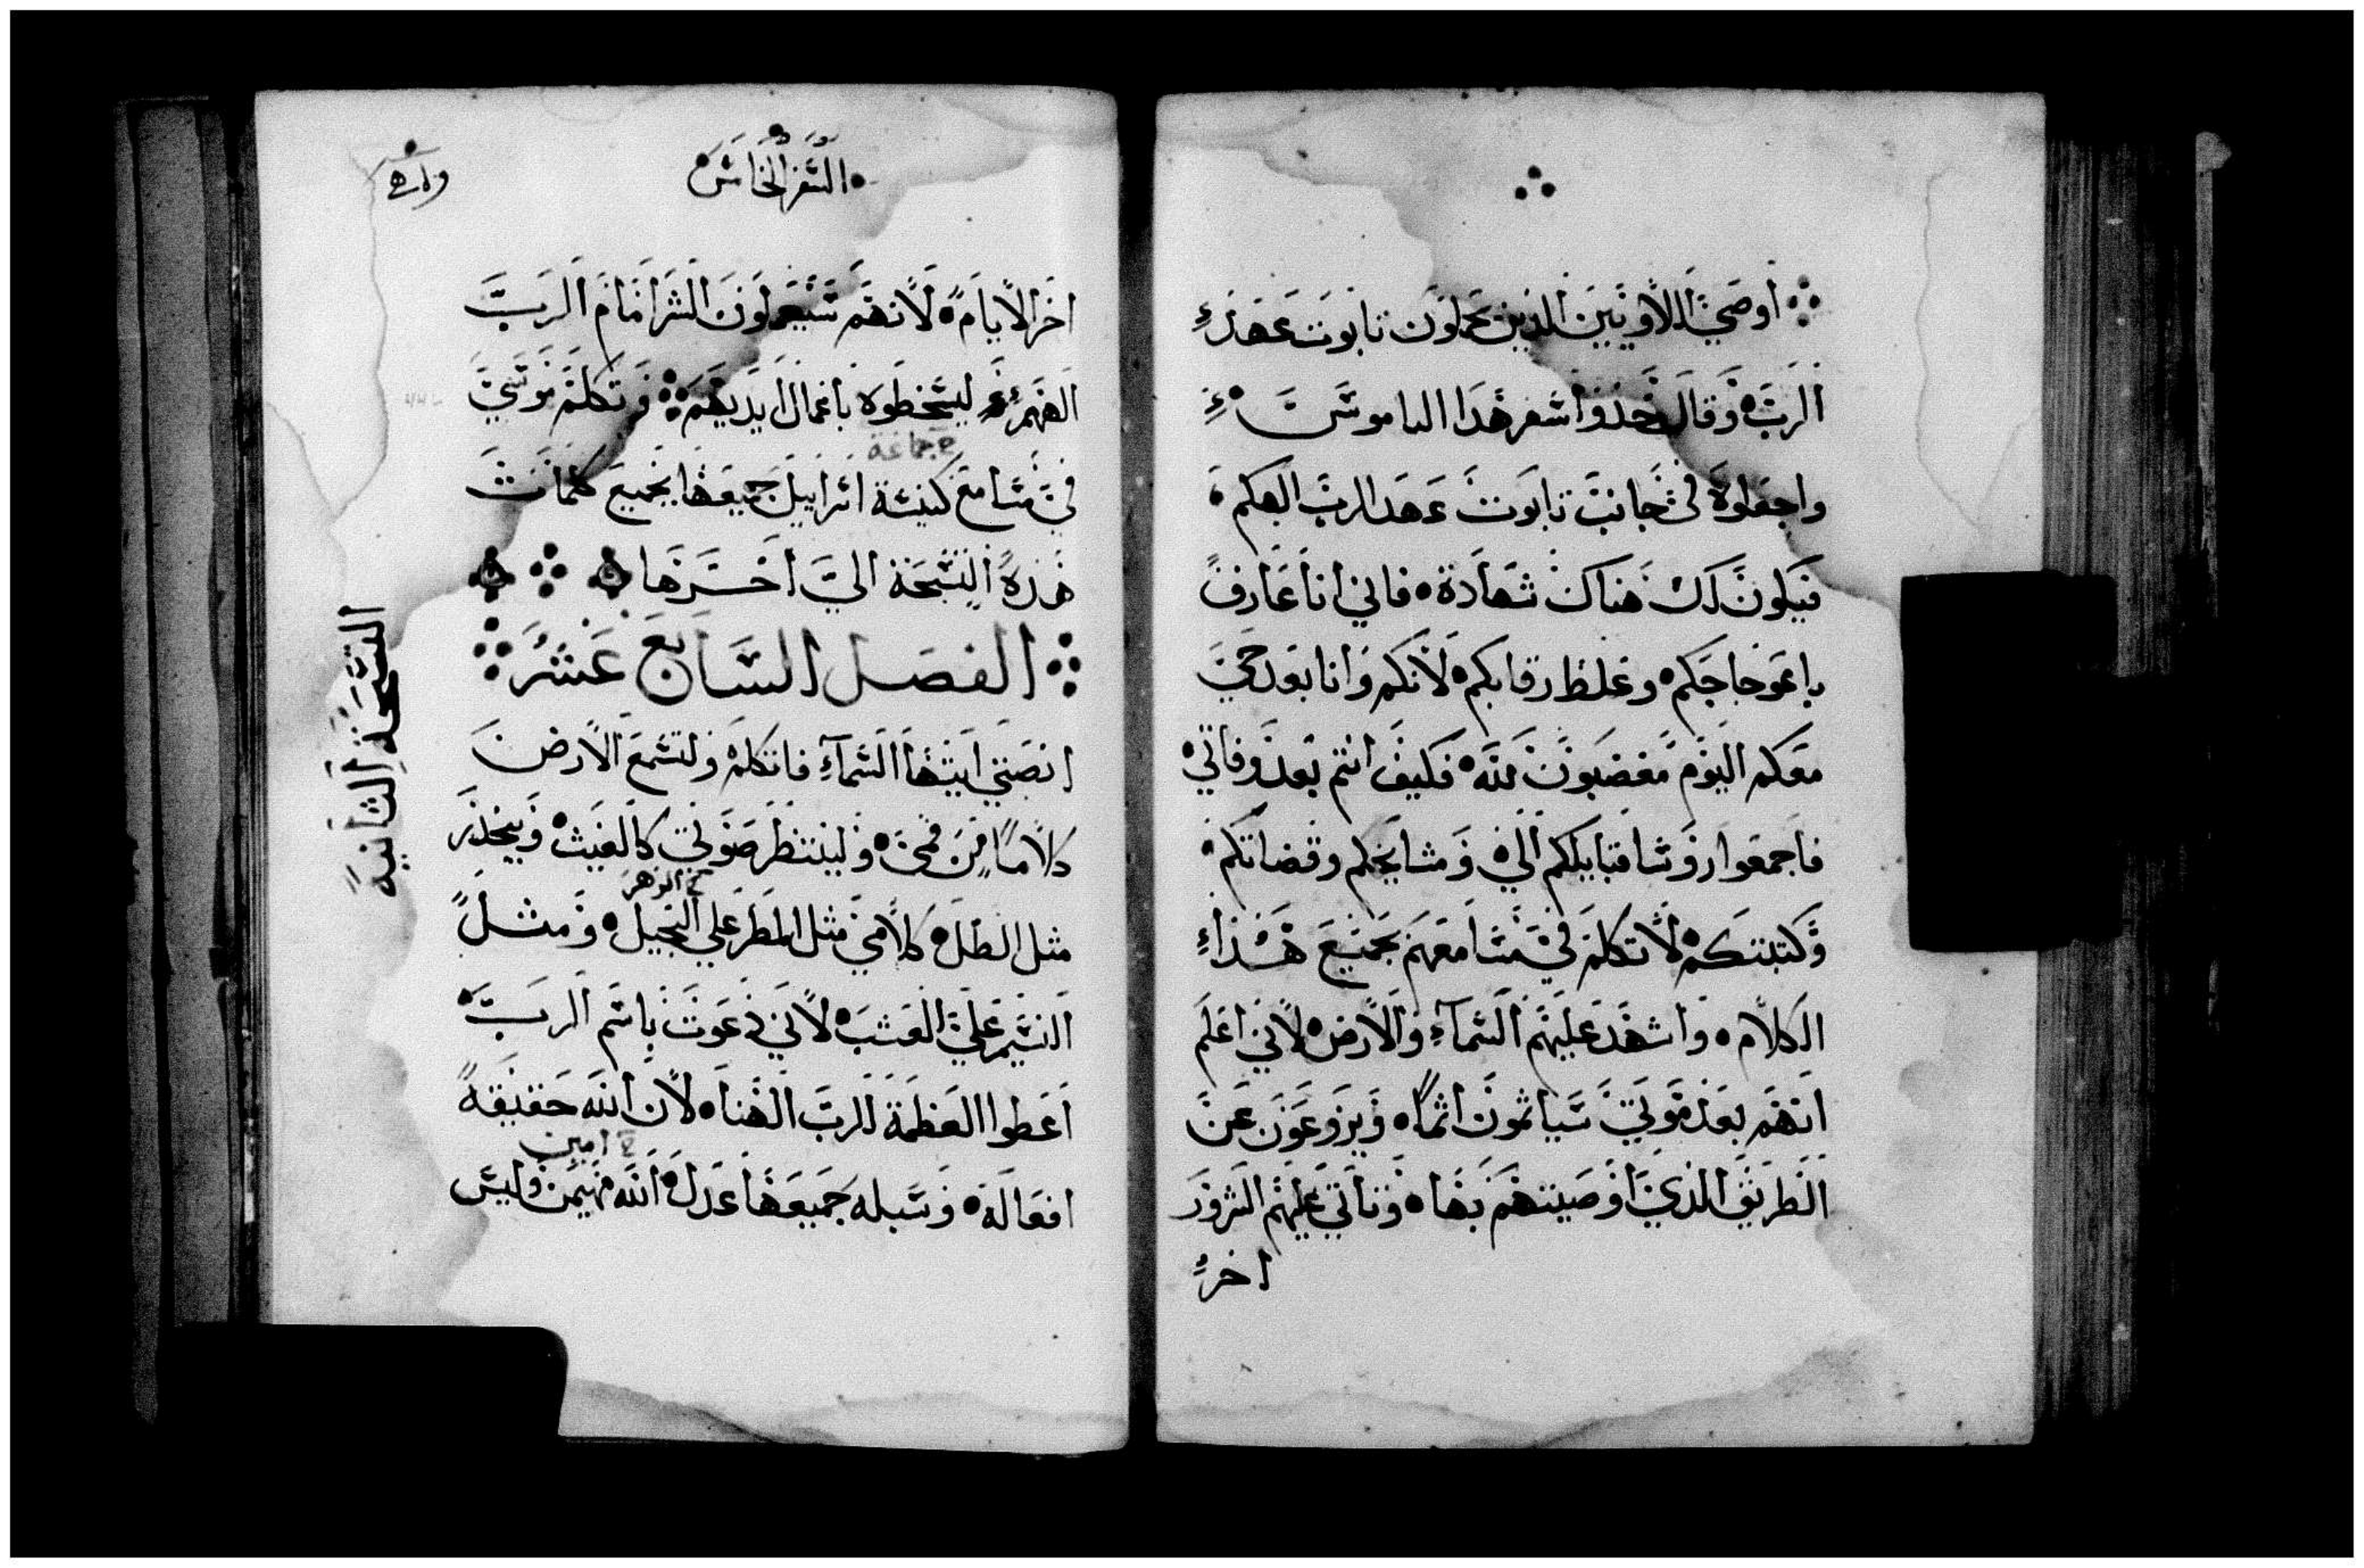 أوصي اللاويين الذين يحملون تابوت عهد
الرب وقال خذوا سفر هذا الناموس
واجعلوه في جانب تابوت عهد الرب الهكم
فيكون لك هناك شهادة فاني أنا عارف
باعوجاجكم وغلظ رقابكم لأنكم وانا بعد حي
معكم اليوم مغضبون لله فكيف انتم بعد وفاتي
فاجمعوا روسا قبايلكم الي ومشايخكم وقضاتكم
وكتبتكم لاتكلم في مسامعهم بجميع هذا
الكلام واشهد عليهم السماء والارض لاني اعلم
انهم بعد موتي سياثمون اثما ويزوعون عن
الطريق الذي اوصيتهم بها وتاتي عليهم الشرور
اخر
السفر الخامس
اخر الايام لانهم سيعملون الشر امام الرب
الههم ليسخطوه باعمال ايديهم وتكلم موسي
جماعة
في مسامع كنيسة اسراييل جميعها بجميع كلمات
هذه التسبحة الي اخرها
الفصل السابع عشر
انصتي ايتها السماء فاتكلم ولتسمع الارض
كلاما من فمي ولينتظر صوتي كالغيث وينحدر
الزهر
مثل الطل كلامي مثل المطر علي النجيل ومثل
النسيم علي العشب لاني دعوت باسم الرب
اعطوا العظمة للرب الهنا لان الله حقيقة
امين
افعاله وسبله جميعها عدل الله مهيمن وليس
التسبحة الثانية